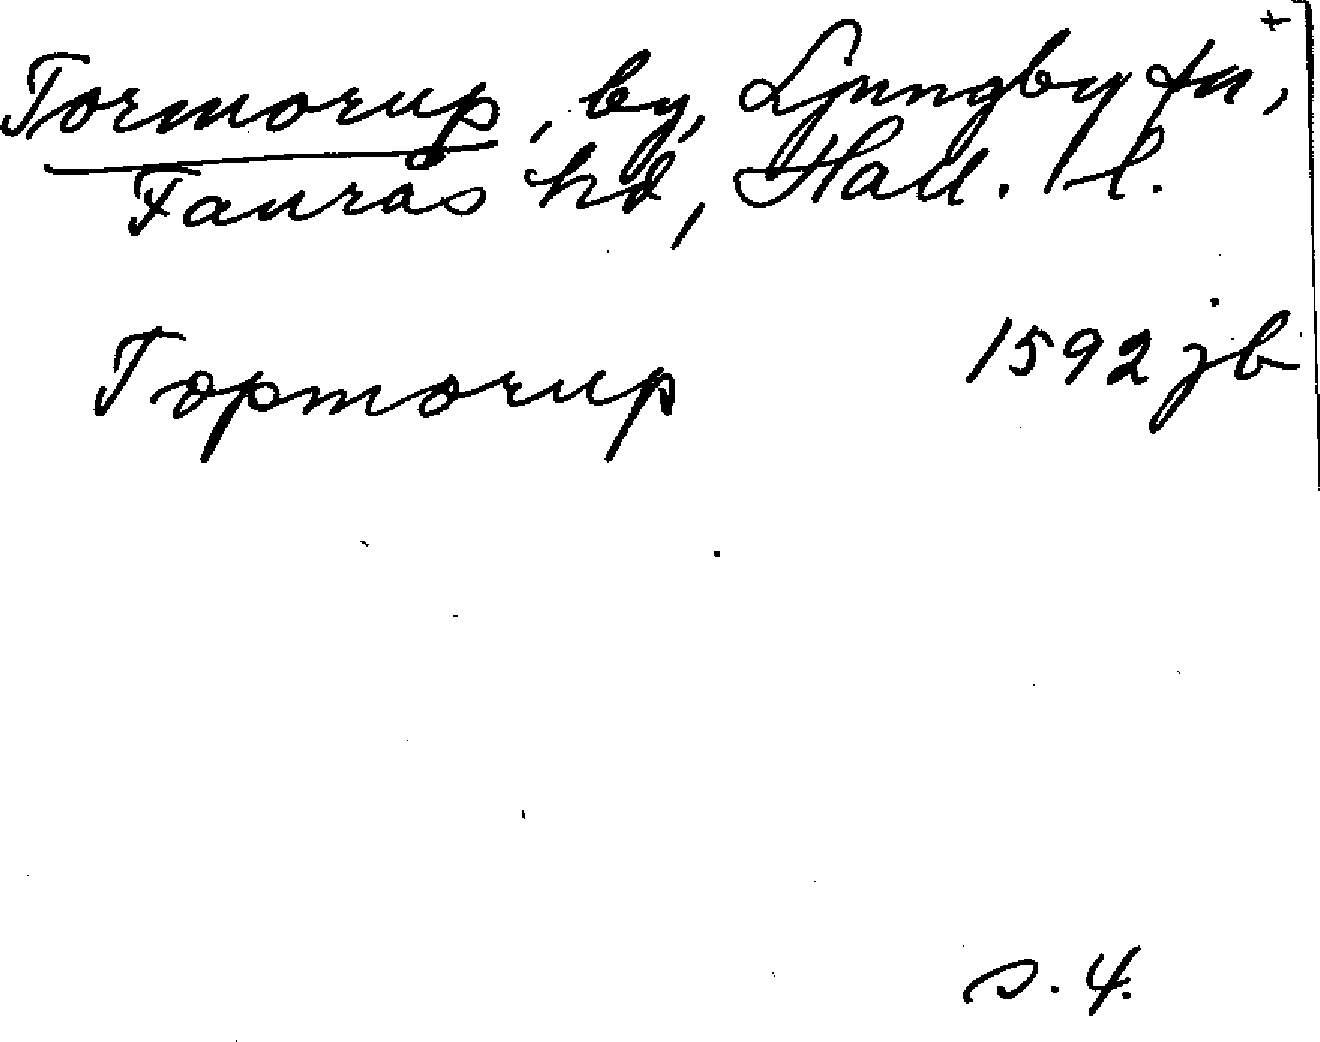 +
Tormorup, by, Ljungby sn,
Faurås hd, Hall. l.
Topmorup 1592 jb
s. 4.